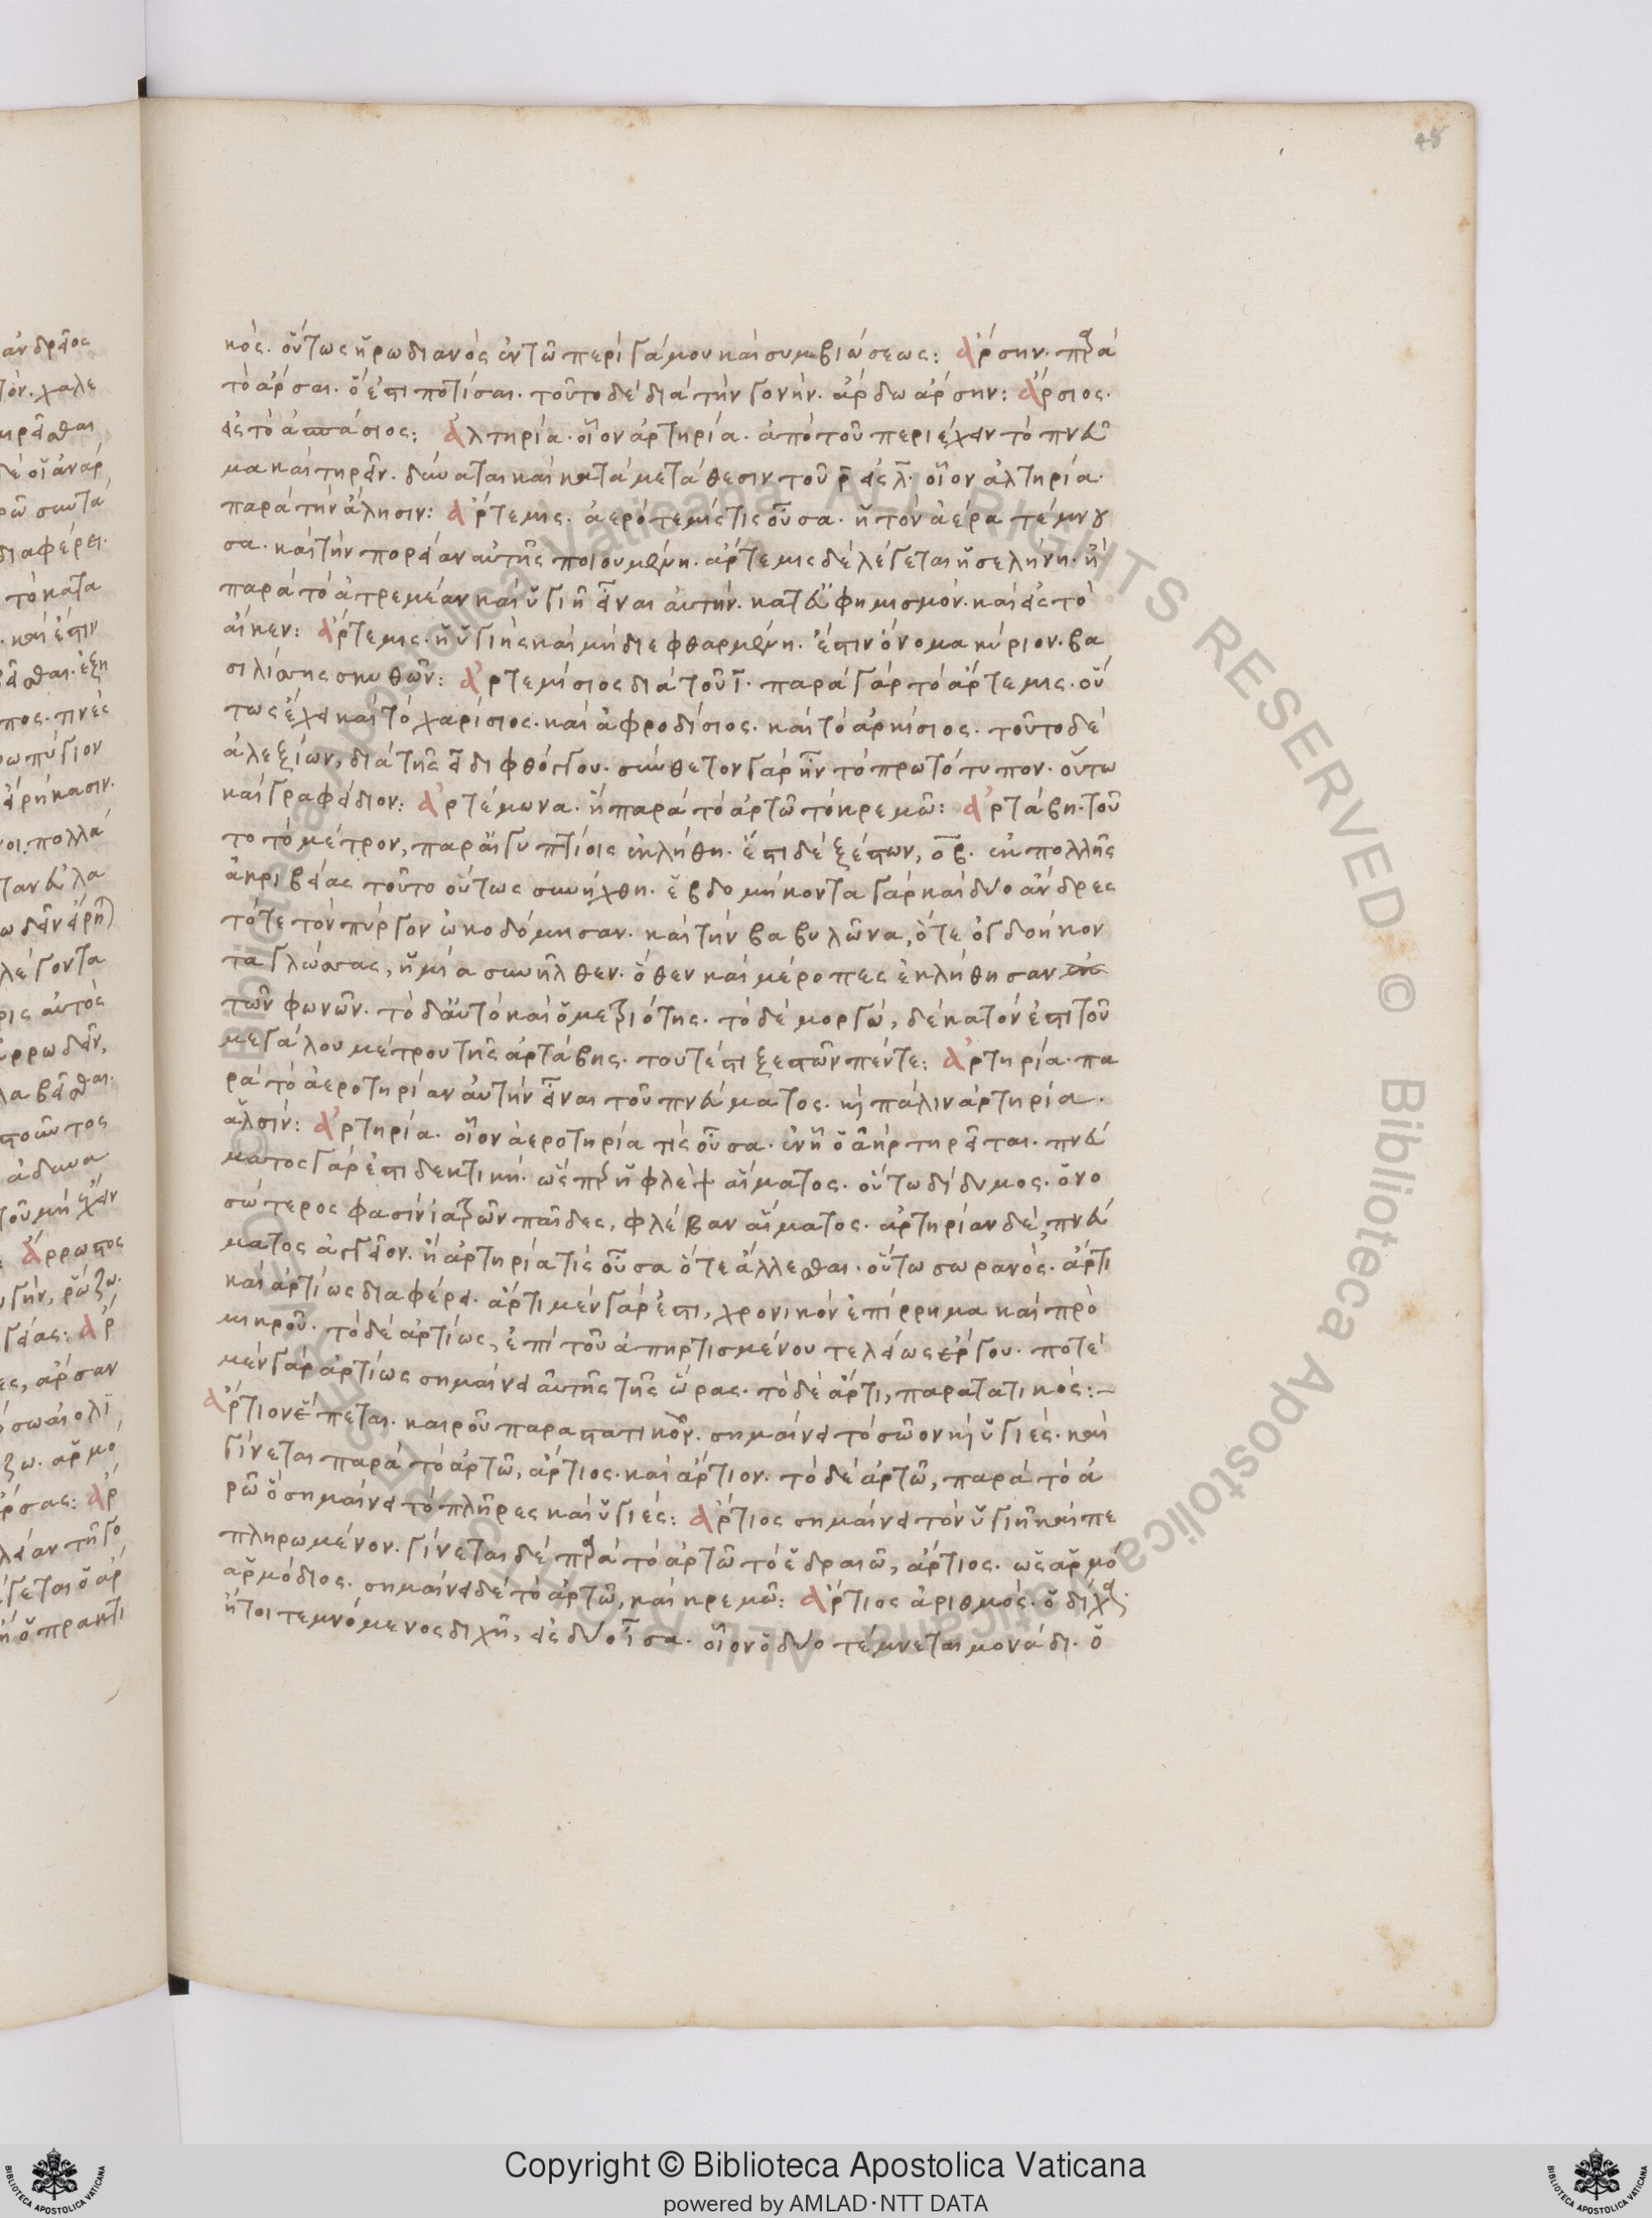 48
κός. οὕτως ἡρωδιανὸς ἐν τῶ περὶ γάμου καὶ συμβιώσεως: ἄρσην. παρὰ
τὸ ἄρσαι. ὅ ἐστι ποτίσαι. τοῦτο δὲ διὰ τὴν γονήν. ἄρδω ἄρσην: ἄρσιος.
εἰς τὸ ἀνάρσιος: ἀλτηρία. οἷον ἀρτηρία. ἀπὸ τοῦ περιέχειν τὸ πνεῦ
μα καὶ τηρεῖν. δύναται καὶ κατὰ μετάθεσιν τοῦ ρ εἰς λ. οἷον ἀλτηρία.
παρὰ τὴν ἄλησιν: ἄρτεμις. ἀερότεμίς τις οὖσα. ἡ τὸν ἀέρα τέμνου
σα. καὶ τὴν πορείαν αὐτῆς ποιουμένη. ἄρτεμις δὲ λέγεται ἡ σελήνη. ἢ
παρὰ τὸ ἀτρεμέαν καὶ ὑγιῆ εἶναι αὐτήν. κατ' εὐφημισμόν. καὶ εἰς τὸ
αἴκεν: ἄρτεμις. ἡ ὑγιὴς καὶ μὴ διεφθαρμένη. ἔστιν ὄνομα κύριον. βα
σιλίσσης σκυθῶν: ἀρτεμίσιος διὰ τοῦ ι. παρὰ γὰρ τὸ ἄρτεμις. οὕ
τως ἔχει καὶ τὸ χαρίσιος. καὶ ἀφροδίσιος. καὶ τὸ ἀρκίσιος. τοῦτο δὲ
ἀλεξίων, διὰ τῆς ει διφθόγγου. σύνθετον γὰρ ἦν τὸ πρωτότυπον. οὕτω
καὶ γραφείδιον: ἀρτέμωνα. ἢ παρὰ τὸ ἀρτῶ τὸ κρεμῶ: ἀρτάβη. τοῦ
το τὸ μέτρον, παρ' αἰγυπτίοις ἐκλήθη. ἔστι δὲ ξέστων, οβ. ἐκ πολλῆς
ἀκριβείας τοῦτο οὕτως συνήχθη. ἑβδομήκοντα γὰρ καὶ δύο ἄνδρες
τότε τὸν πύργον ὠκοδόμησαν. καὶ τὴν βαβυλῶνα, ὅτε ὀγδοήκον
τα γλώσσας, ἡ μία συνῆλθεν. ὅθεν καὶ μέροπες ἐκλήθησαν
τῶν φωνῶν. τὸ δ' αὐτὸ καὶ ὁ μετριότης. τὸ δὲ μοργώ, δέκατόν ἐστι τοῦ
μεγάλου μέτρου τῆς ἀρτάβης. τουτέστι ξεστῶν πέντε: ἀρτηρία. πα
ρὰ τὸ ἀεροτηρίαν αὐτὴν εἶναι τοῦ πνεύματος. καὶ πάλιν ἀρτηρία.
ἄλσιν: ἀρτηρία. οἷον ἀεροτηρία τὶς οὖσα. ἐν ἧ ὁ ἀὴρ τηρεῖται. πνεύ
ματος γὰρ ἐστι δεκτική. ὥσπερ ἡ φλὲψ αἵματος. οὕτω δίδυμος. ὀνο
σώτερος φασὶν ἰατρῶν παῖδες, φλέβαν αἵματος. ἀρτηρίαν δὲ, πνεύ
ματος ἀγγεῖον. ἢ ἀρτηρία τὶς οὖσα ὅτε ἅλλεσθαι. οὕτω σωρανός. ἄρτι
καὶ ἀρτίως διαφέρει. ἄρτι μὲν γάρ ἐστι, χρονικὸν ἐπίρρημα καὶ πρὸ
μικροῦ. τὸ δὲ ἀρτίως, ἐπὶ τοῦ ἀπηρτισμένου τελείως ἔργου. ποτὲ
μὲν γὰρ ἀρτίως σημαίνει αὐτῆς τῆς ὥρας. τὸ δὲ ἄρτι, παρατατικός:–
ἄρτιον ἔπεται. καιροῦ παραστατικόν. σημαίνει τὸ σῶον καὶ ὑγιές. καὶ
γίνεται παρὰ τὸ ἀρτῶ, ἄρτιος. καὶ ἄρτιον. τὸ δὲ ἀρτῶ, παρὰ τὸ ἀ
ρῶ ὃ σημαίνει τὸ πλῆρες καὶ ὑγιές: ἄρτιος σημαίνει τὸν ὑγιῆ καὶ πε
πληρωμένον. γίνεται δὲ παρὰ τὸ ἀρτῶ τὸ ἑδραιῶ, ἄρτιος. ὡς ἁρμό
ἁρμόδιος. σημαίνει δὲ τὸ ἀρτῶ, καὶ κρεμῶ: ἄρτιος ἀριθμός. ὁ δίχα.
ἤτοι τεμνόμενος διχῆ, εἰς δύο ἴσα. οἷον ὁ δύο τέμνεται μονάδι. ὁ
Copyright © Biblioteca Apostolica Vaticana
powered by AMLAD・NTT DATA